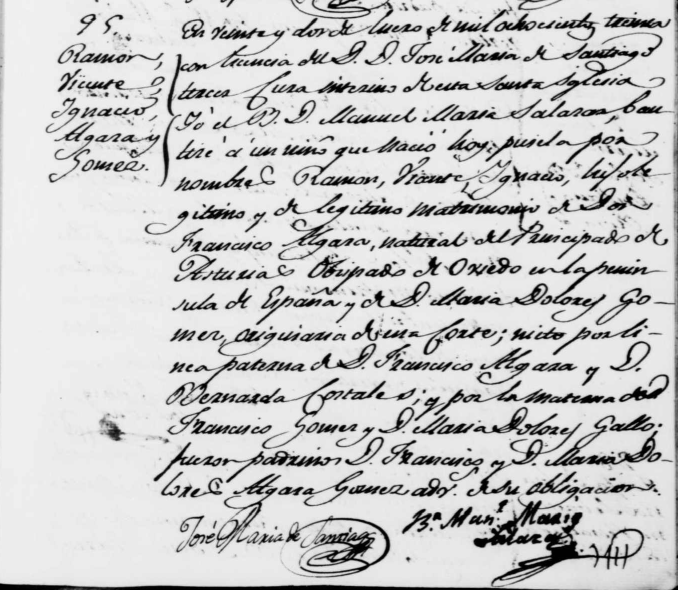 95.
Ramon,
Vicente,
Ignacio,
Algara y
Gomez.
En veinte y dos de Enero de mil ochocientos treinta
con licencia del D. D. José Maria de Santiago
tercer Cura interino de esta Santa Yglesia
Yó el B. D. Manuel Maria Salazar, bau-
ticé á un niño que nació hoy, pusele por
nombres Ramon, Vicente, Ygnacio, hijo le-
gitimo y de legitimo matrimonio de Don
Francisco Algara, natural del Principado de
Asturias Obispado de Oviedo en la penin-
sula de España y de D. Maria Dolores Go-
mez, originaria de esta Corte; nieto por li-
nea paterna de D. Francisco Algara y D.
Bernarda Cortales; y por la materna de
Francisco Gomez y D. Maria Dolores Gallo;
fueron padrinos D. Francisco y D. Maria Do-
lores Algara Gomez adv. de su obligacion.
José Maria de Santiago
B.r Man.l Maria
Salazar